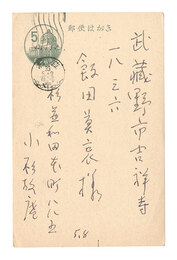 郵便はかき
5
武蔵野市吉祥寺
一八三六
飯田莫哀様
杉並和田本町八八五
小杉放庵
5.8